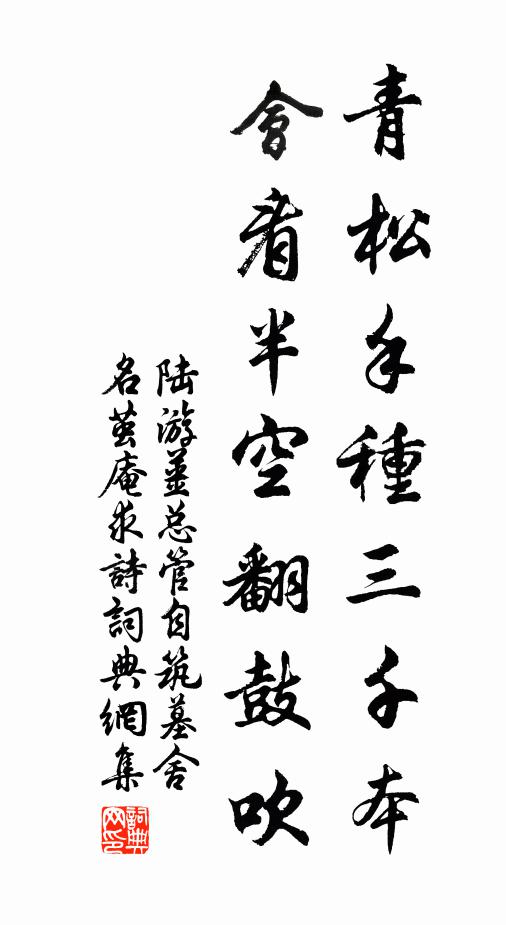 青松手種三千本
會看半空翻鼓吹
陆游姜总管自筑墓舍
名茧庵求詩詞典網集
詞典网印